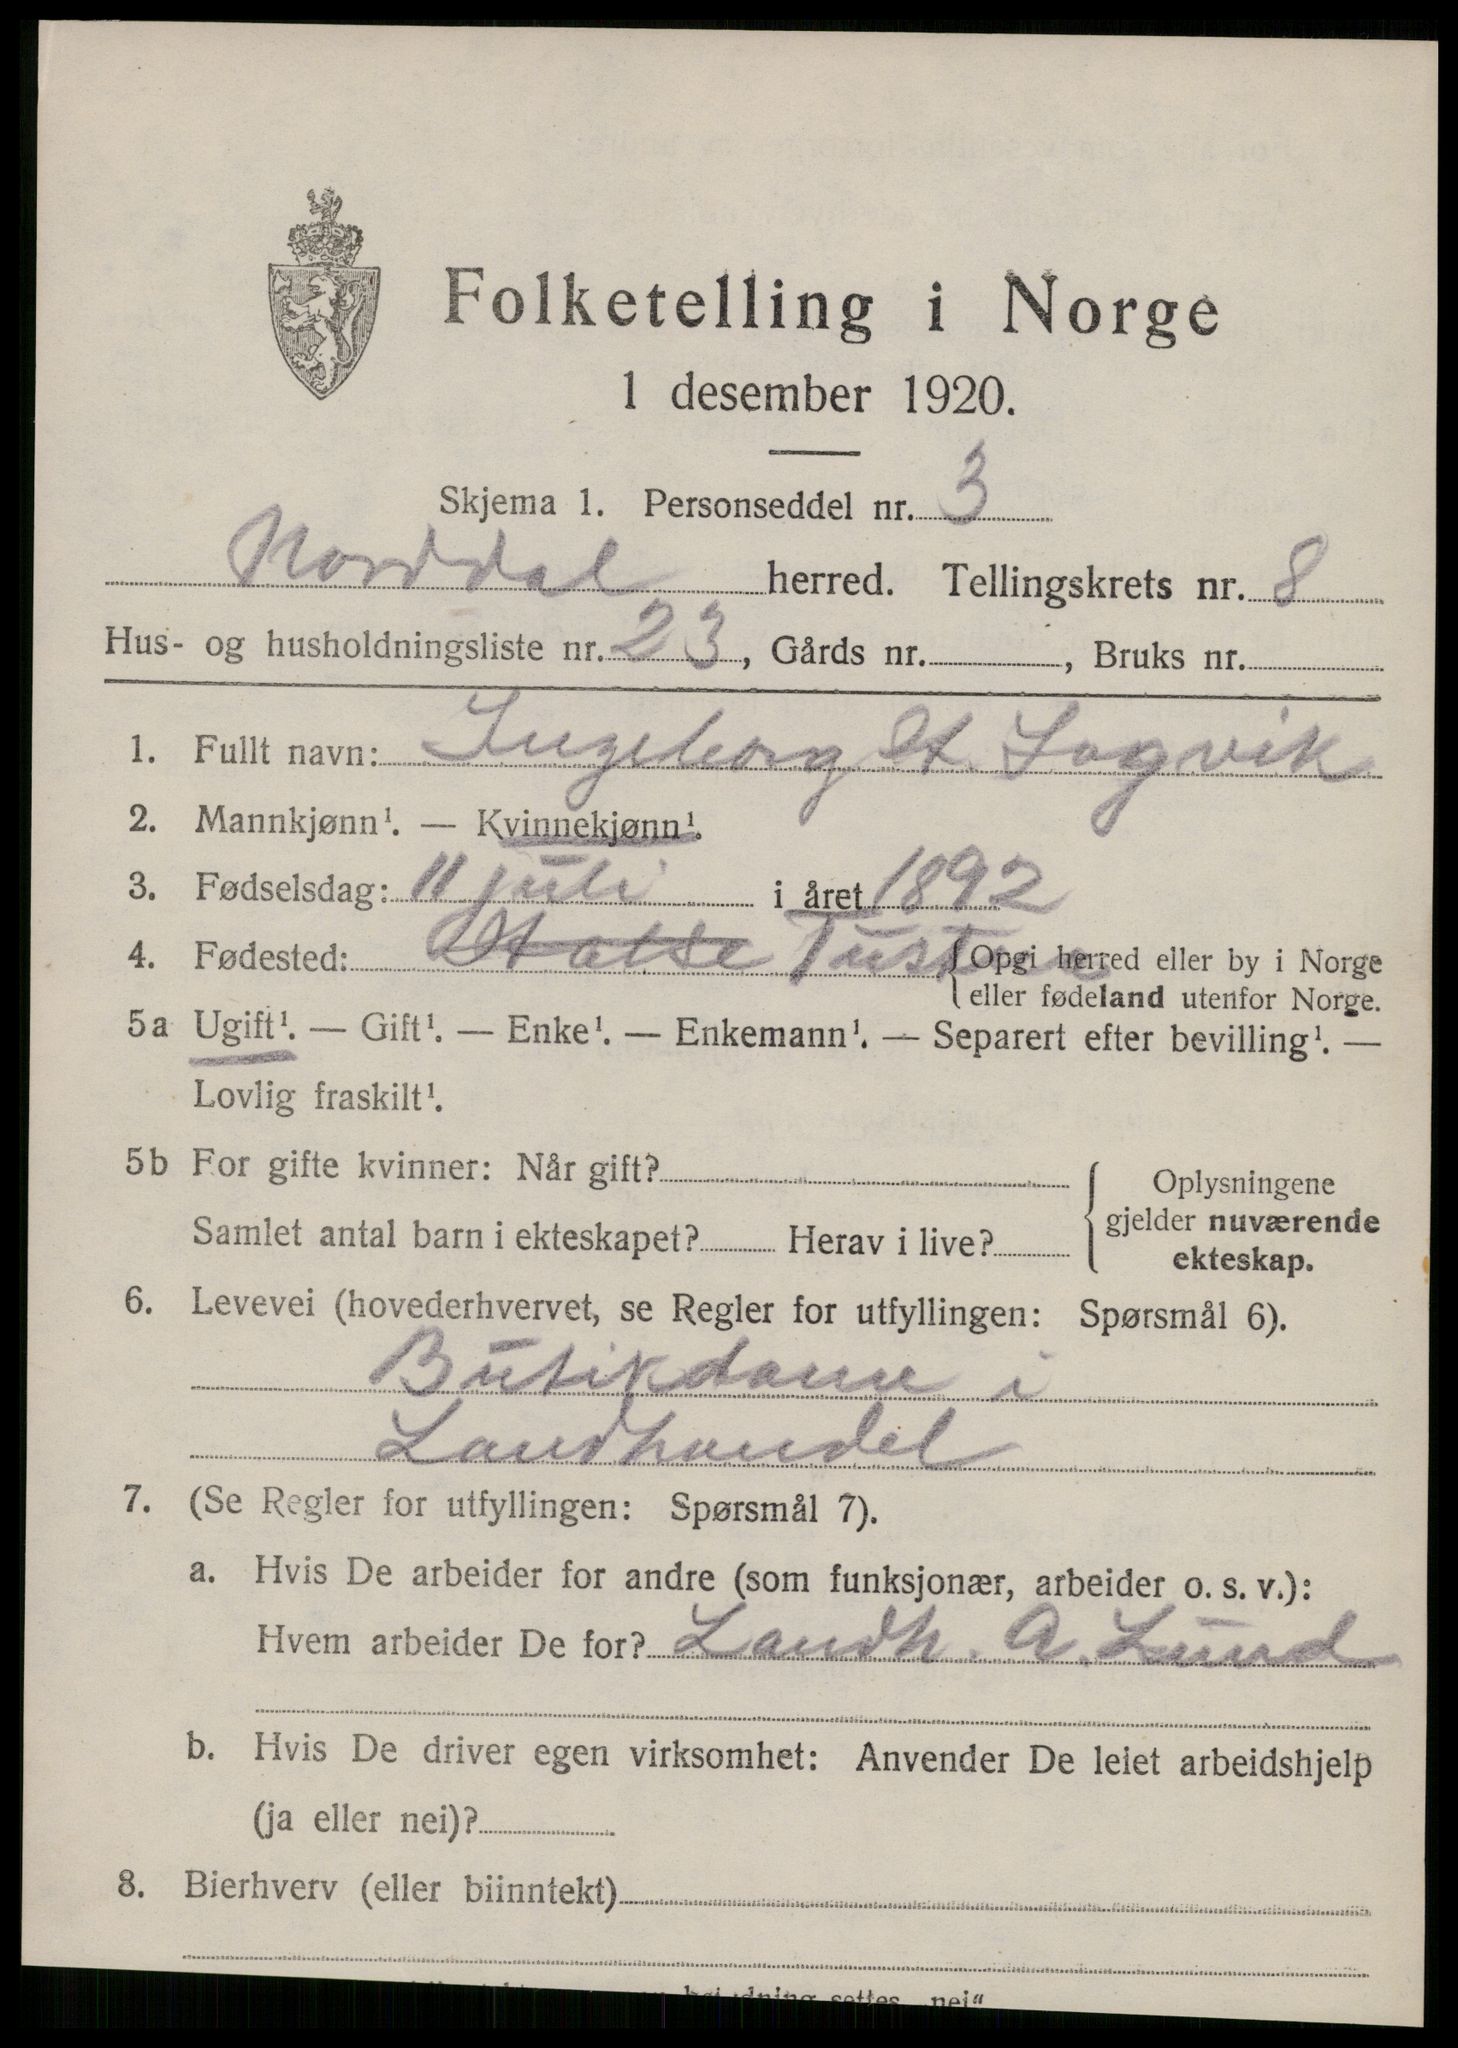 Folketelling i Norge
1 desember 1920.
Skjema 1. Personseddel nr. 3
Norddal herred. Tellingskrets nr. 8
Hus- og husholdningsliste nr. 23, Gårds nr. , Bruks nr.
1. Fullt navn: Ingeborg A. Sagvik
2. Mannkjønn¹. — Kvinnekjønn¹.
3. Fødselsdag: 11 juli i året 1892
4. Fødested: Halse Tustna {Opgi herred eller by i Norge
eller fødeland utenfor Norge.
5a Ugift¹. — Gift¹. — Enke¹. — Enkemann¹. — Separert efter bevilling¹. —
Lovlig fraskilt¹.
5b For gifte kvinner: Når gift? { Oplysningene
gjelder nuværende
Samlet antal barn i ekteskapet? Herav i live?
ekteskap.
6. Levevei (hovederhvervet, se Regler for utfyllingen: Spørsmål 6).
Butikdame i
Landhandel
7. (Se Regler for utfyllingen: Spørsmål 7).
a. Hvis De arbeider for andre (som funksjonær, arbeider o. s. v.):
Hvem arbeider De for? Landh. A. Lund
b. Hvis De driver egen virksomhet: Anvender De leiet arbeidshjelp
(ja eller nei)?
8. Bierhverv (eller biinntekt)
settes „nei“